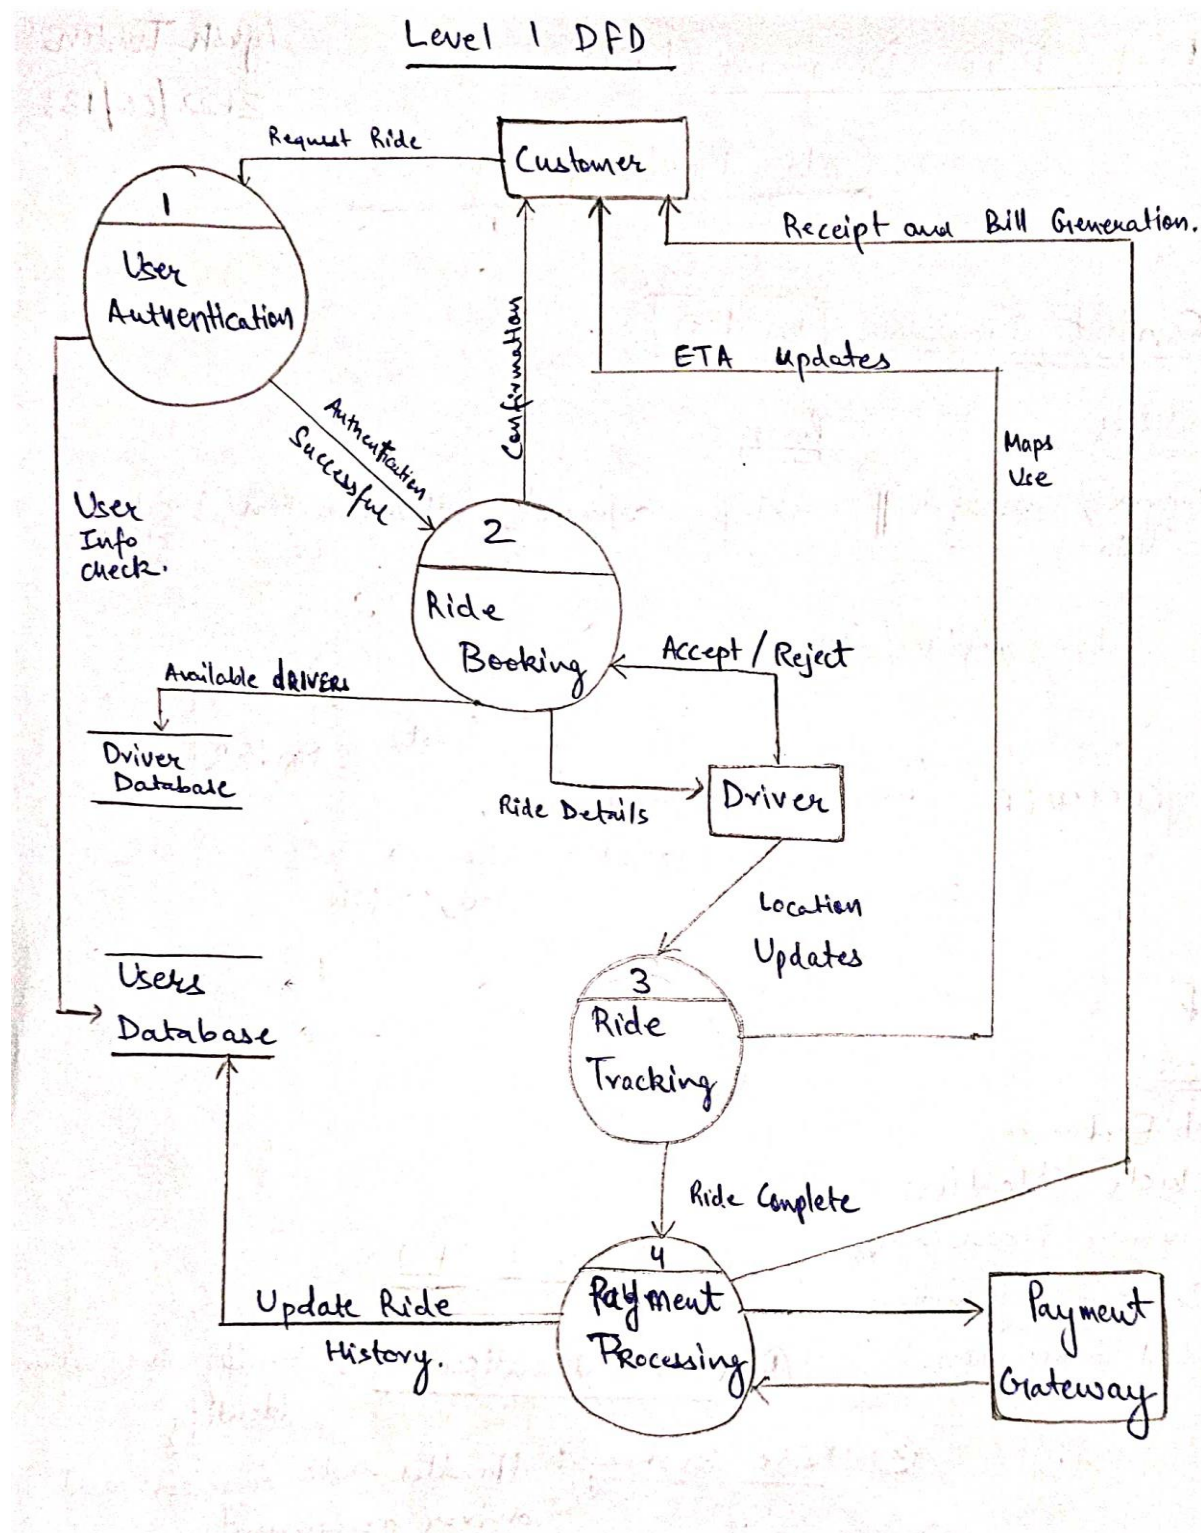 Level 1 DFD
Request Ride
Customer
Receipt and Bill Generation.
1
User
Authentication
Confirmation
ETA updates
Authentication
Successful
Maps
Use
User
Info
check.
2
Ride
Booking
Accept / Reject
Available dRIVERs
Driver
Database
Ride Details
Driver
Location
Updates
Users
Database
3
Ride
Tracking
Ride Complete
4
Payment
Processing
Update Ride
History.
Payment
Gateway